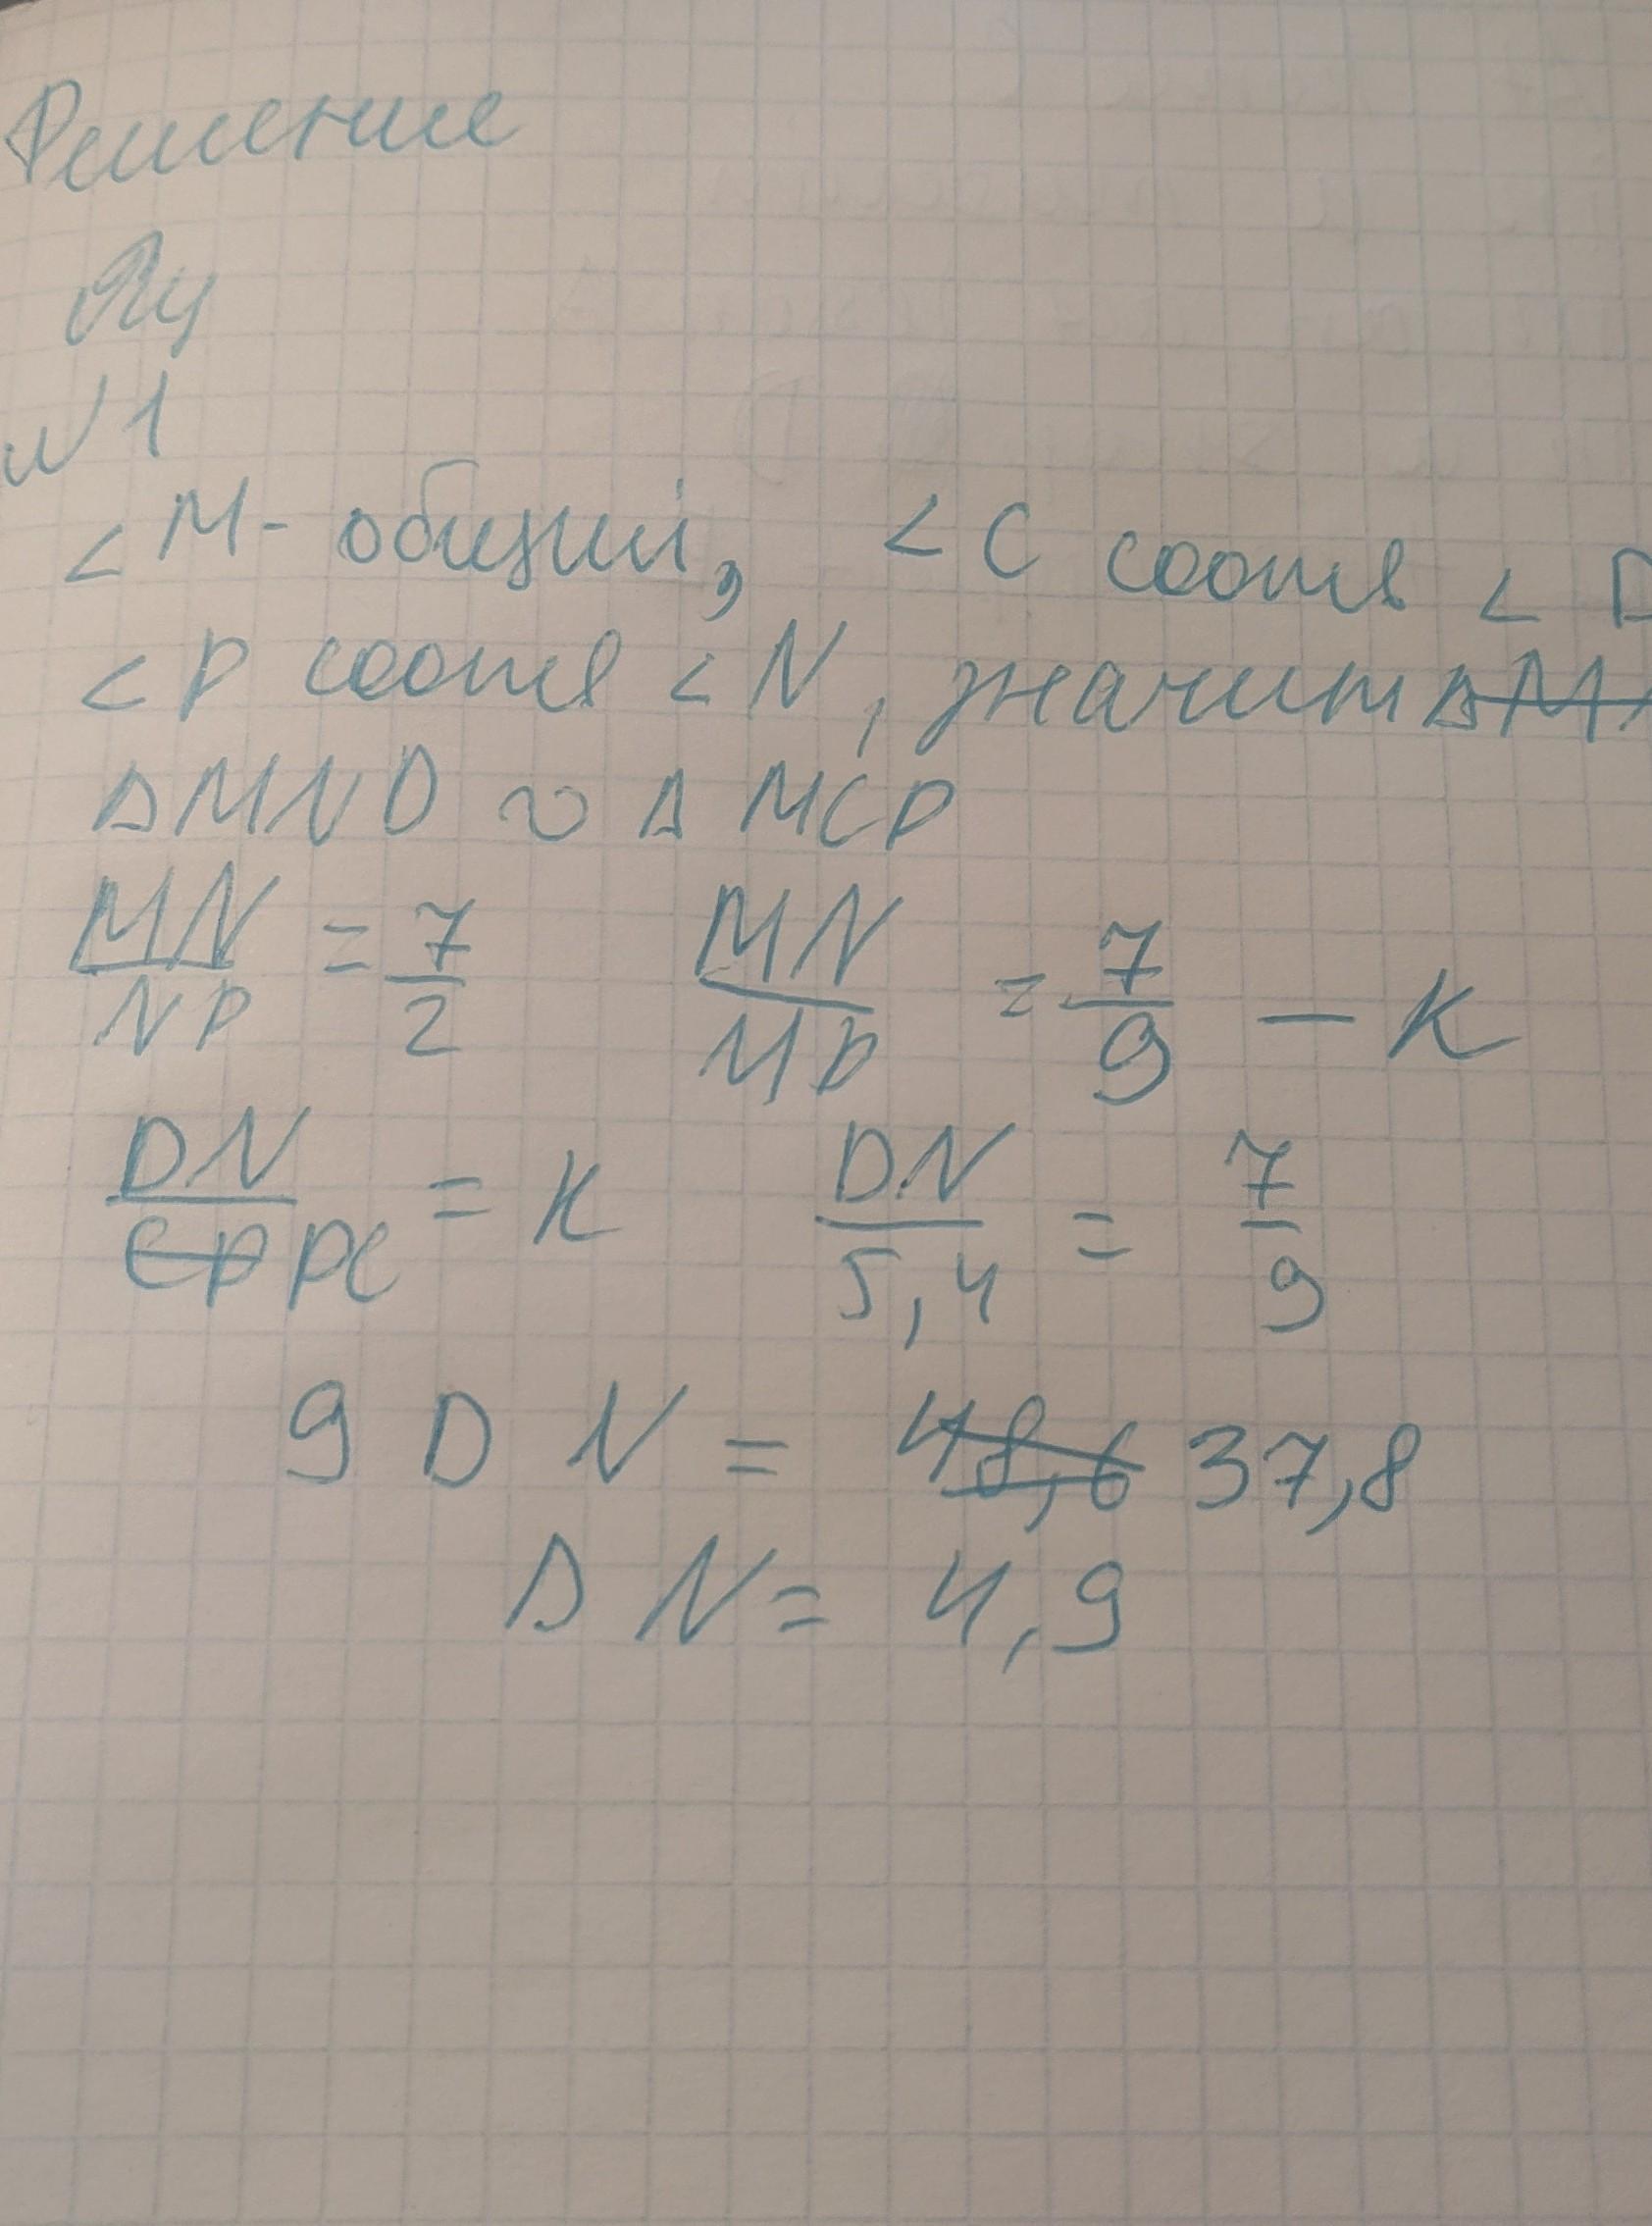 Решение
N1
<M- общий, <C соотв < D
<P соотв <N, значит
ΔMND ∾ ΔMCP
MN/NP = 7/2   MN/MP = 7/9 - K
DN/PC = K   DN/5,4 = 7/9
9 DN = 37,8
DN = 4,9